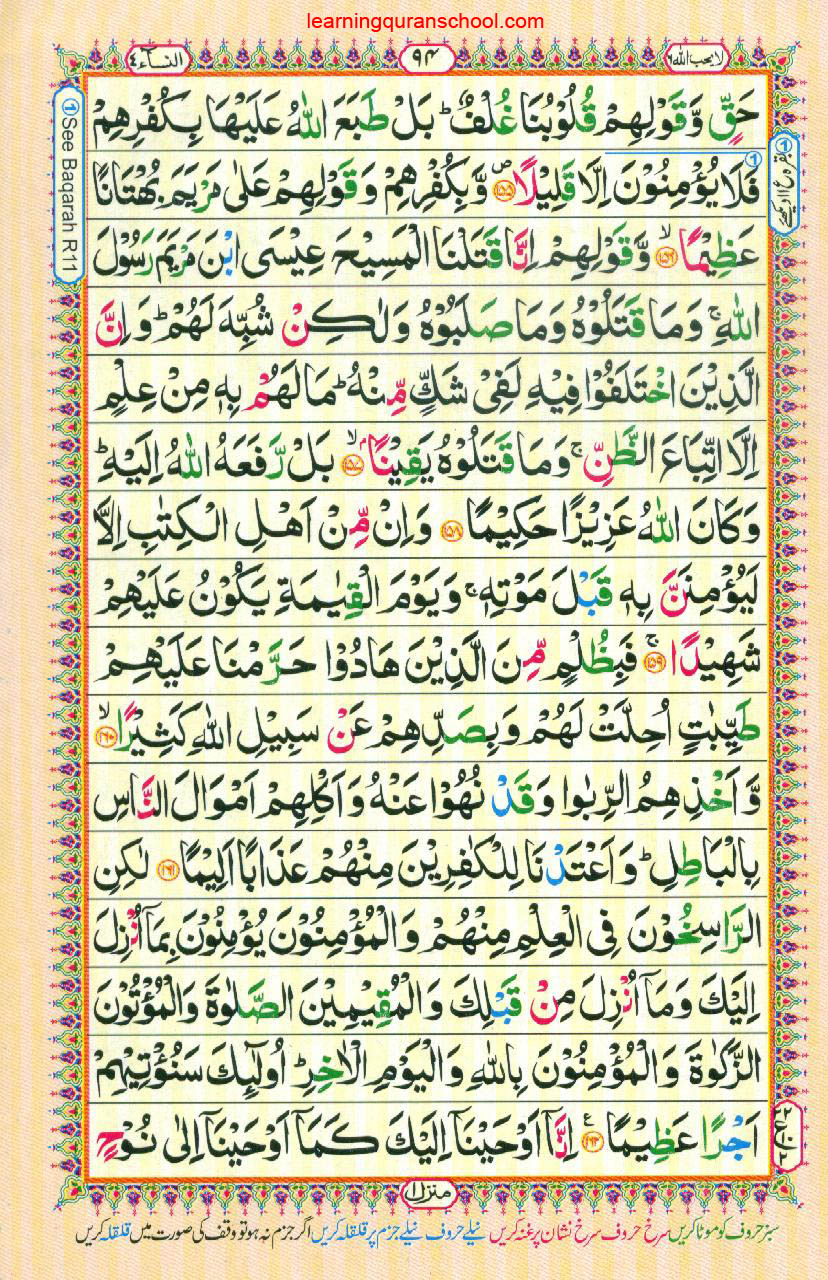 learningquranschool.com
لا يحب الله ٦
٩٤
النسآء ٤
حَقٍّ وَّقَوْلِهِمْ قُلُوْبُنَا غُلْفٌ ؕ بَلْ طَبَعَ اللّٰهُ عَلَيْهَا بِكُفْرِهِمْ
فَلَا يُؤْمِنُوْنَ اِلَّا قَلِيْلًا ۪﴿۱۵۵﴾ وَّبِكُفْرِهِمْ وَقَوْلِهِمْ عَلٰى مَرْيَمَ بُهْتَانًا
عَظِيْمًا ۙ﴿۱۵۶﴾ وَّقَوْلِهِمْ اِنَّا قَتَلْنَا الْمَسِيْحَ عِيْسَى ابْنَ مَرْيَمَ رَسُوْلَ
اللّٰهِ ۚ وَمَا قَتَلُوْهُ وَمَا صَلَبُوْهُ وَلٰكِنْ شُبِّهَ لَهُمْ ؕ وَاِنَّ
الَّذِيْنَ اخْتَلَفُوْا فِيْهِ لَفِىْ شَكٍّ مِّنْهُ ؕ مَا لَهُمْ بِهٖ مِنْ عِلْمٍ
اِلَّا اتِّبَاعَ الظَّنِّ ۚ وَمَا قَتَلُوْهُ يَقِيْنًا ۢ ۙ﴿۱۵۷﴾ بَلْ رَّفَعَهُ اللّٰهُ اِلَيْهِ ؕ
وَكَانَ اللّٰهُ عَزِيْزًا حَكِيْمًا ﴿۱۵۸﴾ وَاِنْ مِّنْ اَهْلِ الْكِتٰبِ اِلَّا
لَيُؤْمِنَنَّ بِهٖ قَبْلَ مَوْتِهٖ ۚ وَيَوْمَ الْقِيٰمَةِ يَكُوْنُ عَلَيْهِمْ
شَهِيْدًا ۚ﴿۱۵۹﴾ فَبِظُلْمٍ مِّنَ الَّذِيْنَ هَادُوْا حَرَّمْنَا عَلَيْهِمْ
طَيِّبٰتٍ اُحِلَّتْ لَهُمْ وَبِصَدِّهِمْ عَنْ سَبِيْلِ اللّٰهِ كَثِيْرًا ۙ﴿۱۶۰﴾
وَّاَخْذِهِمُ الرِّبٰوا وَقَدْ نُهُوْا عَنْهُ وَاَكْلِهِمْ اَمْوَالَ النَّاسِ
بِالْبَاطِلِ ؕ وَاَعْتَدْنَا لِلْكٰفِرِيْنَ مِنْهُمْ عَذَابًا اَلِيْمًا ﴿۱۶۱﴾ لٰكِنِ
الرّٰسِخُوْنَ فِى الْعِلْمِ مِنْهُمْ وَالْمُؤْمِنُوْنَ يُؤْمِنُوْنَ بِمَاۤ اُنْزِلَ
اِلَيْكَ وَمَاۤ اُنْزِلَ مِنْ قَبْلِكَ وَالْمُقِيْمِيْنَ الصَّلٰوةَ وَالْمُؤْتُوْنَ
الزَّكٰوةَ وَالْمُؤْمِنُوْنَ بِاللّٰهِ وَالْيَوْمِ الْاٰخِرِ ؕ اُولٰٓئِكَ سَنُؤْتِيْهِمْ
اَجْرًا عَظِيْمًا ﴿۱۶۲﴾ اِنَّاۤ اَوْحَيْنَاۤ اِلَيْكَ كَمَاۤ اَوْحَيْنَاۤ اِلٰى نُوْحٍ
① See Baqarah R11
منزل ١
سبز حروف کو موٹا کریں سرخ حروف سرخ نشان پر غنہ کریں نیلے حروف نیلے جزم پر قلقلہ کریں اگر جزم نہ ہو تو وقف کی صورت میں قلقلہ کریں